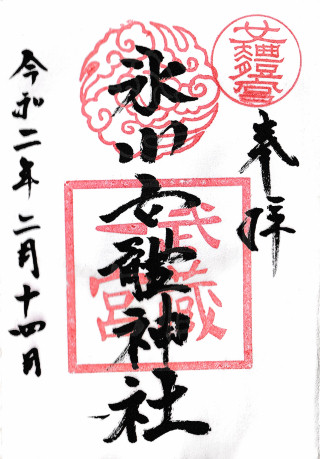 奉拝
氷川女體神社
武蔵
一宮
令和二年二月十四日